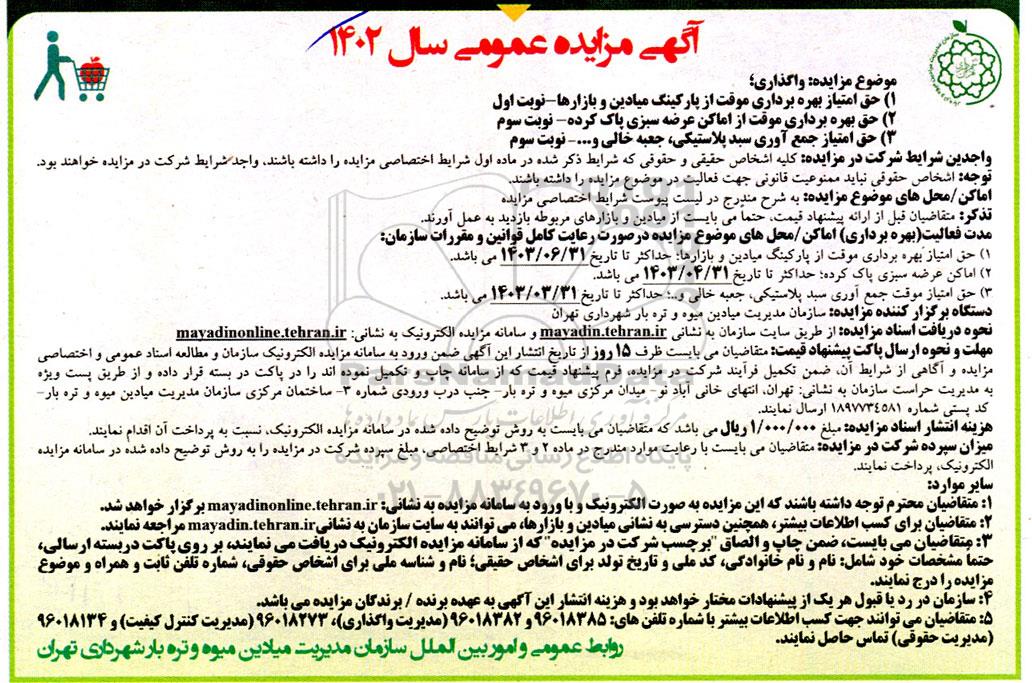 آگهی مزایده عمومی سال ۱۴۰۲
موضوع مزایده: واگذاری؛
۱) حق امتیاز بهره برداری موقت از پارکینگ میادین و بازارها-نوبت اول
۲) حق بهره برداری موقت از اماکن عرضه سبزی پاک کرده- نوبت سوم
۳) حق امتیاز جمع آوری سبد پلاستیکی، جعبه خالی و...- نوبت سوم
واجدین شرایط شرکت در مزایده: کلیه اشخاص حقیقی و حقوقی که شرایط ذکر شده در ماده اول شرایط اختصاصی مزایده را داشته باشند، واجد شرایط شرکت در مزایده خواهند بود.
توجه: اشخاص حقوقی نباید ممنوعیت قانونی جهت فعالیت در موضوع مزایده را داشته باشند.
اماکن/محل های موضوع مزایده: به شرح مندرج در لیست پیوست شرایط اختصاصی مزایده
تذکر: متقاضیان قبل از ارائه پیشنهاد قیمت، حتما می بایست از میادین و بازارهای مربوطه بازدید به عمل آورند.
مدت فعالیت(بهره برداری) اماکن/محل های موضوع مزایده درصورت رعایت کامل قوانین و مقررات سازمان:
۱) حق امتیاز بهره برداری موقت از پارکینگ میادین و بازارها: حداکثر تا تاریخ ۱۴۰۳/۰۶/۳۱ می باشد.
۲) اماکن عرضه سبزی پاک کرده؛ حداکثر تا تاریخ ۱۴۰۳/۰۴/۳۱ می باشد.
۳) حق امتیاز موقت جمع آوری سبد پلاستیکی، جعبه خالی و..: حداکثر تا تاریخ ۱۴۰۳/۰۳/۳۱ می باشد.
دستگاه برگزار کننده مزایده: سازمان مدیریت میادین میوه و تره بار شهرداری تهران
نحوه دریافت اسناد مزایده: از طریق سایت سازمان به نشانی mayadin.tehran.ir و سامانه مزایده الکترونیک به نشانی: mayadinonline.tehran.ir
مهلت و نحوه ارسال پاکت پیشنهاد قیمت: متقاضیان می بایست ظرف ۱۵ روز از تاریخ انتشار این آگهی ضمن ورود به سامانه مزایده الکترونیک سازمان و مطالعه اسناد عمومی و اختصاصی
مزایده و آگاهی از شرایط آن، ضمن تکمیل فرآیند شرکت در مزایده، فرم پیشنهاد قیمت که از سامانه چاپ و تکمیل نموده اند را در پاکت در بسته قرار داده و از طریق پست ویژه
به مدیریت حراست سازمان به نشانی: تهران، انتهای خانی آباد نو- میدان مرکزی میوه و تره بار- جنب درب ورودی شماره ۳- ساختمان مرکزی سازمان مدیریت میادین میوه و تره بار-
کد پستی شماره ۱۸۹۷۷۳۴۵۸۱ ارسال نمایند.
هزینه انتشار اسناد مزایده: مبلغ ۱/۰۰۰/۰۰۰ ریال می باشد که متقاضیان می بایست به روش توضیح داده شده در سامانه مزایده الکترونیک، نسبت به پرداخت آن اقدام نمایند.
میزان سپرده شرکت در مزایده: متقاضیان می بایست با رعایت موارد مندرج در ماده ۲ و ۳ شرایط اختصاصی، مبلغ سپرده شرکت در مزایده را به روش توضیح داده شده در سامانه مزایده
الکترونیک، پرداخت نمایند.
سایر موارد:
۱: متقاضیان محترم توجه داشته باشند که این مزایده به صورت الکترونیک و با ورود به سامانه مزایده به نشانی: mayadinonline.tehran.ir برگزار خواهد شد.
۲: متقاضیان برای کسب اطلاعات بیشتر، همچنین دسترسی به نشانی میادین و بازارها، می توانند به سایت سازمان به نشانی mayadin.tehran.ir مراجعه نمایند.
۳: متقاضیان می بایست، ضمن چاپ و الصاق "برچسب شرکت در مزایده" که از سامانه مزایده الکترونیک دریافت می نمایند، بر روی پاکت دربسته ارسالی،
حتماً مشخصات خود شامل: نام و نام خانوادگی، کد ملی و تاریخ تولد برای اشخاص حقیقی؛ نام و شناسه ملی برای اشخاص حقوقی، شماره تلفن ثابت و همراه و موضوع
مزایده را درج نمایند.
۴: سازمان در رد یا قبول هر یک از پیشنهادات مختار خواهد بود و هزینه انتشار این آگهی به عهده برنده / برندگان مزایده می باشد.
۵: متقاضیان می توانند جهت کسب اطلاعات بیشتر با شماره تلفن های: ۹۶۰۱۸۳۸۵ و ۹۶۰۱۸۳۸۲ (مدیریت واگذاری)، ۹۶۰۱۸۲۷۳ (مدیریت کنترل کیفیت) و ۹۶۰۱۸۱۳۴
(مدیریت حقوقی) تماس حاصل نمایند.
روابط عمومی و امور بین الملل سازمان مدیریت میادین میوه و تره بار شهرداری تهران
ParsNamadData
مرکز فرآوری اطلاعات پارس نماد داده ها
پایگاه اطلاع رسانی مناقصه و مزایده
۰۲۱-۸۸۳۴۹۶۷۰-۵